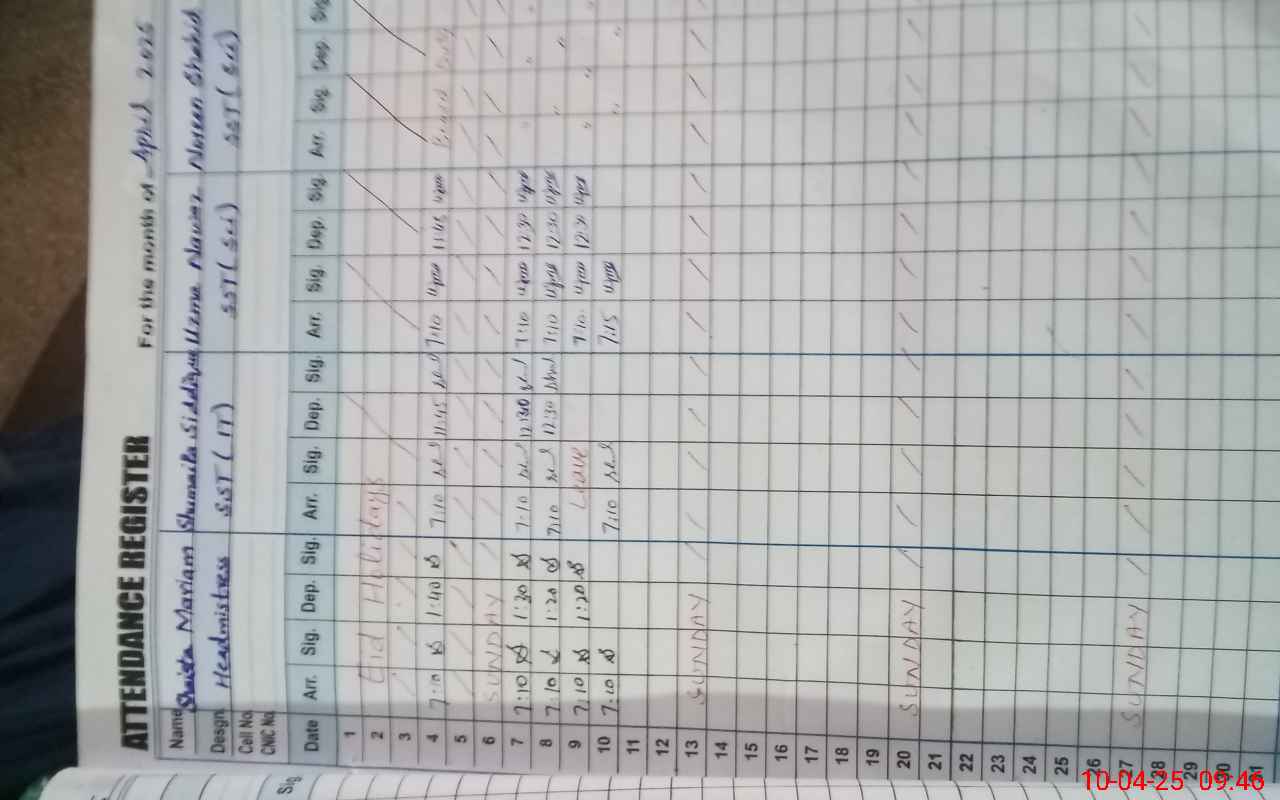 ATTENDANCE REGISTER For the month of April 2025
Name Shaista Mariam Shumaila Siddique Uzma Nawaz Noreen Shahid
Desgn. Headmistress SST (IT) SST (Sci) SST (Sci)
Cell No.
CNIC No.
Date Arr. Sig. Dep. Sig. Arr. Sig. Dep. Sig. Arr. Sig. Dep. Sig. Arr. Sig. Dep. Sig
1
2 Eid Holidays
3
4 7:10 1:40 7:10 11:45 7:10 11:45
5
6 SUNDAY
7 7:10 1:30 7:10 12:30 7:10 12:30
8 7:10 1:20 7:10 12:30 7:10 12:30
9 7:10 1:20 Leave 7:10 12:30
10 7:10 7:10 7:15
11
12
13 SUNDAY
14
15
16
17
18
19
20 SUNDAY
21
22
23
24
25
26
27 SUNDAY
28
29
30
31
Sig
10-04-25 09:46